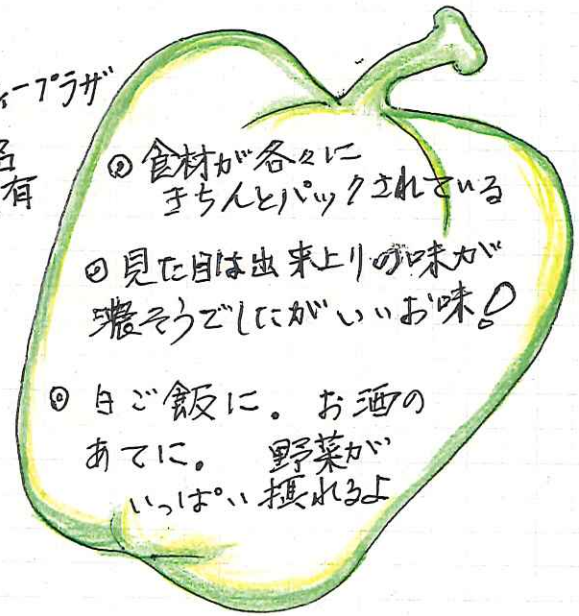 ィープラザ
名
有
◎ 食材が各々に
きちんとパックされている
◎ 見た目は出来上りの味が
濃そうでしたがいいお味!
◎ 白ご飯に。 お酒の
あてに。 野菜が
いっぱい摂れるよ